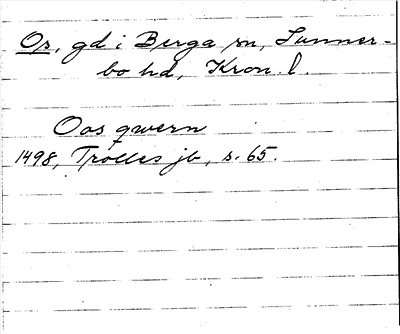 Os, gd i Berga sn, Sunner-
bo hd, Kron. l.
Oos qwern
1498, Trolles jb, s. 65.